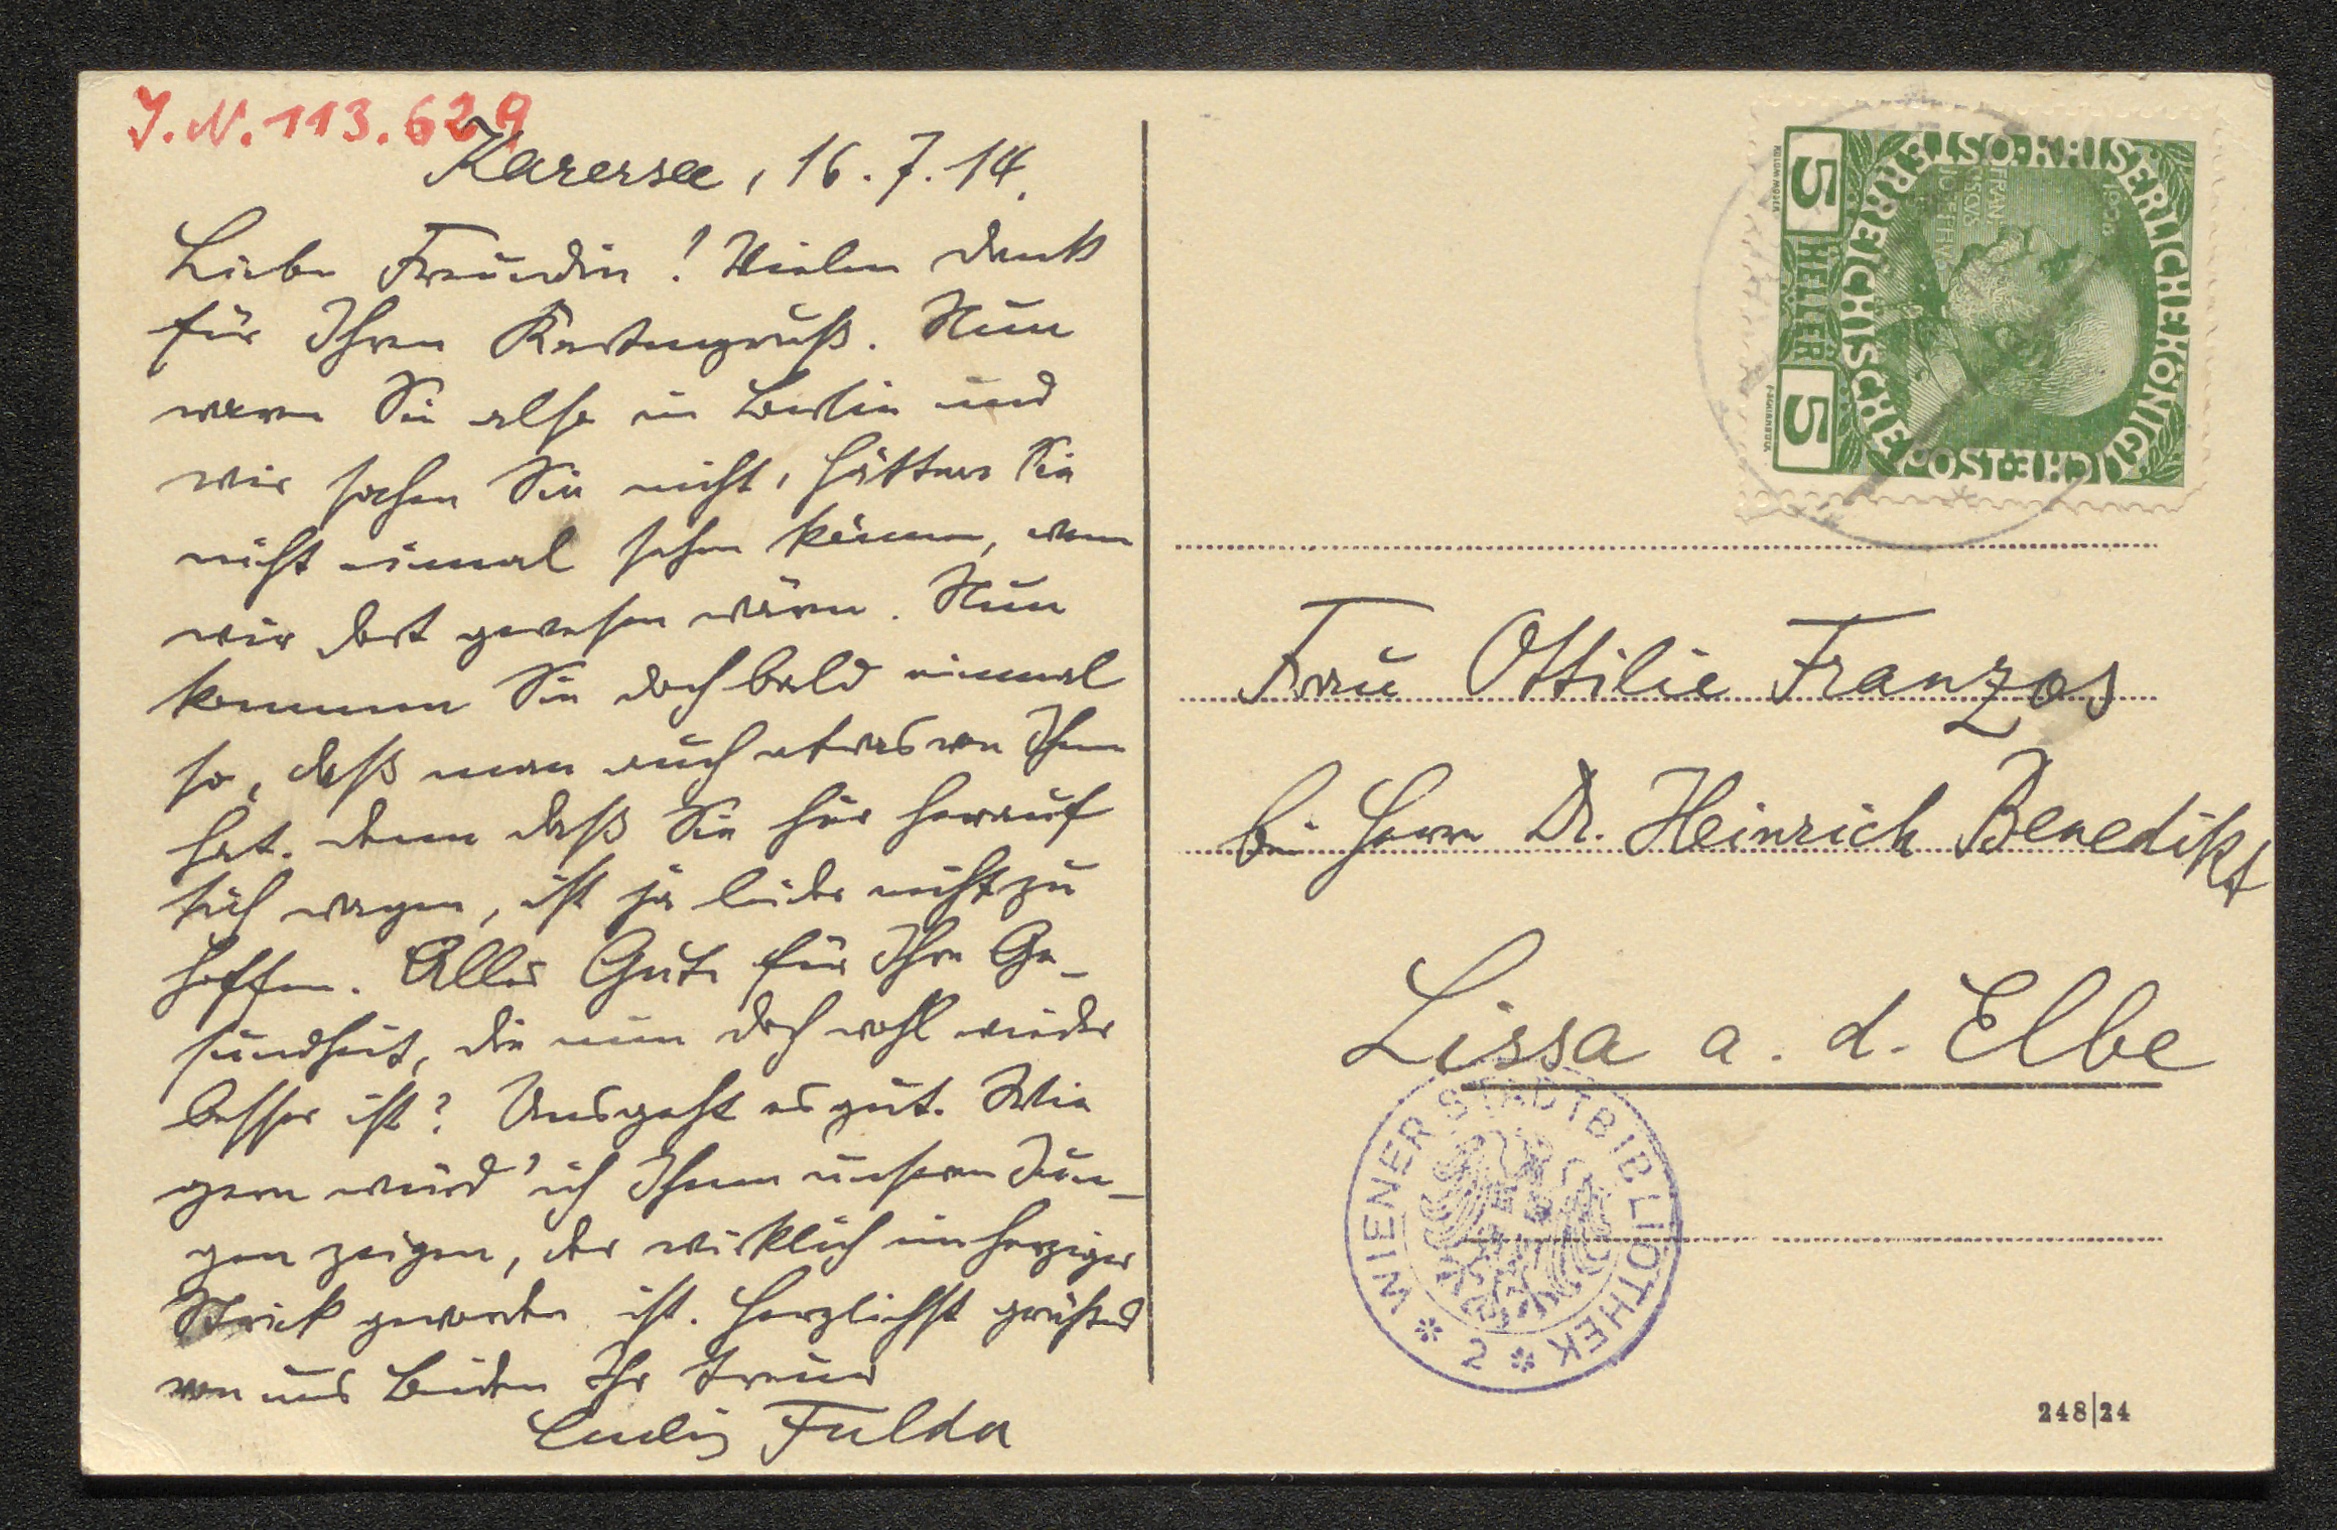 J.N. 113.629
Karersee, 16.7.14.
Liebe Freundin! Vielen Dank
für Ihren Kartengruß. Nun
waren Sie also in Berlin und
wir sahen Sie nicht, hätten Sie
nicht einmal sehen können, wenn
wir dort gewesen wären. Nun
kommen Sie doch bald einmal
so, daß man auch etwas von Ihnen
hat. Denn daß Sie hier herauf
sich wagen, ist ja leider nicht zu
hoffen. Alles Gute für Ihre Ge-
sundheit, die nun doch wohl wieder
besser ist? Uns geht es gut. Wie
gern würd' ich Ihnen unseren Jun-
gen zeigen, der wirklich ein herziger
Strick geworden ist. Herzlichst grüßend
von uns beiden Ihr treuer
Ludwig Fulda
KAISERLICHE KÖNIGLICHE ÖSTERREICHISCHE POST
1908
5 HELLER 5
Frau Ottilie Franzos
bei Herrn Dr. Heinrich Benedikt
Lissa a. d. Elbe
WIENER STADTBIBLIOTHEK
* 2 *
248|24